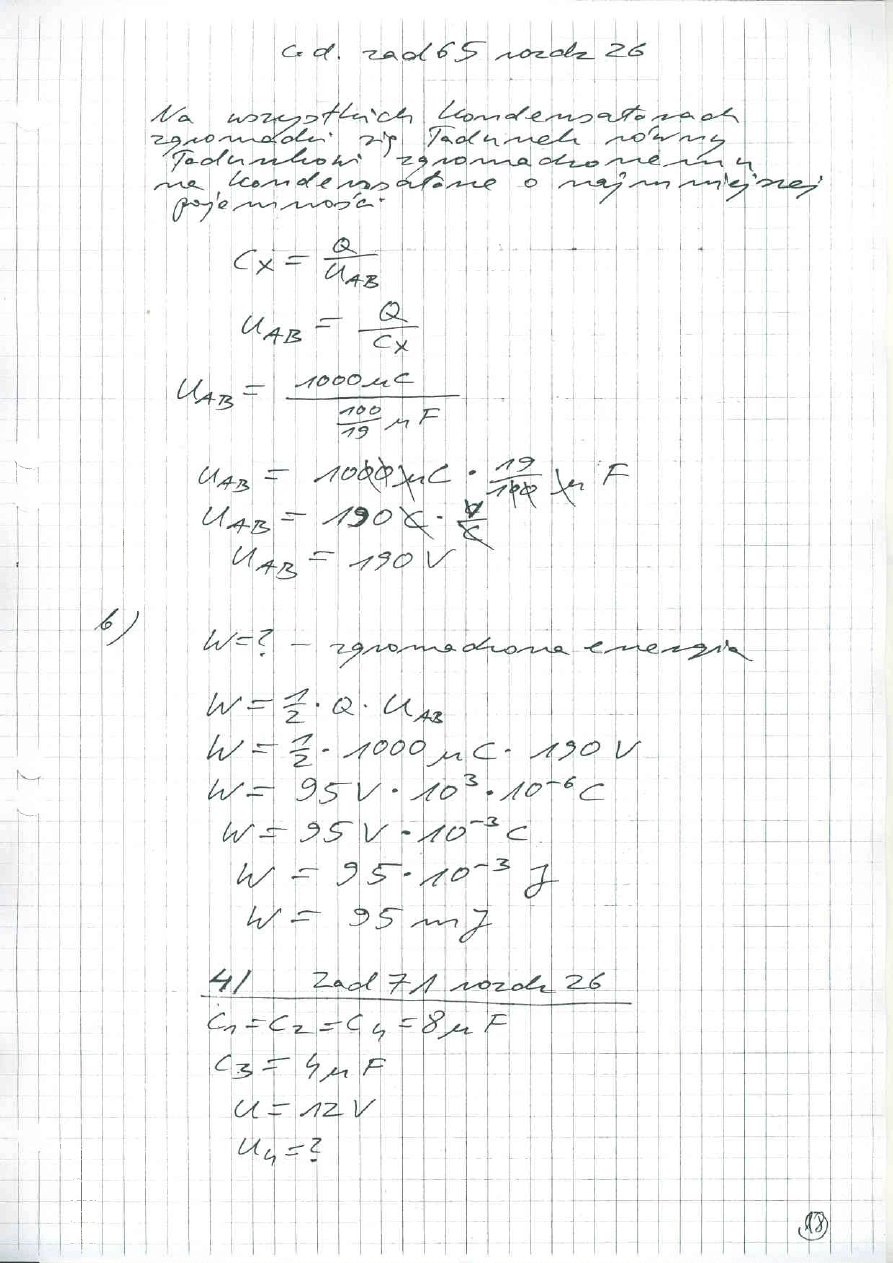 c.d. zad 65 rozdz 26
Na wszystkich kondensatorach
zgromadzi się ładunek równy
ładunkowi zgromadzonemu
na kondensatorze o najmniejszej
pojemności.
Cx = Q / U_AB
U_AB = Q / Cx
U_AB = 1000 μC / (100/19 μF)
U_AB = 1000 μC · 19/100 μ F
U_AB = 190 C · V/C
U_AB = 190 V
b) W=? – zgromadzona energia
W = 1/2 · Q · U_AB
W = 1/2 · 1000 μC · 190 V
W = 95 V · 10³ · 10⁻⁶ C
W = 95 V · 10⁻³ C
W = 95 · 10⁻³ J
W = 95 mJ
4/ Zad 71 rozdz 26
C₁ = C₂ = C₄ = 8 μF
C₃ = 4 μF
U = 12 V
U₄ = ?
18